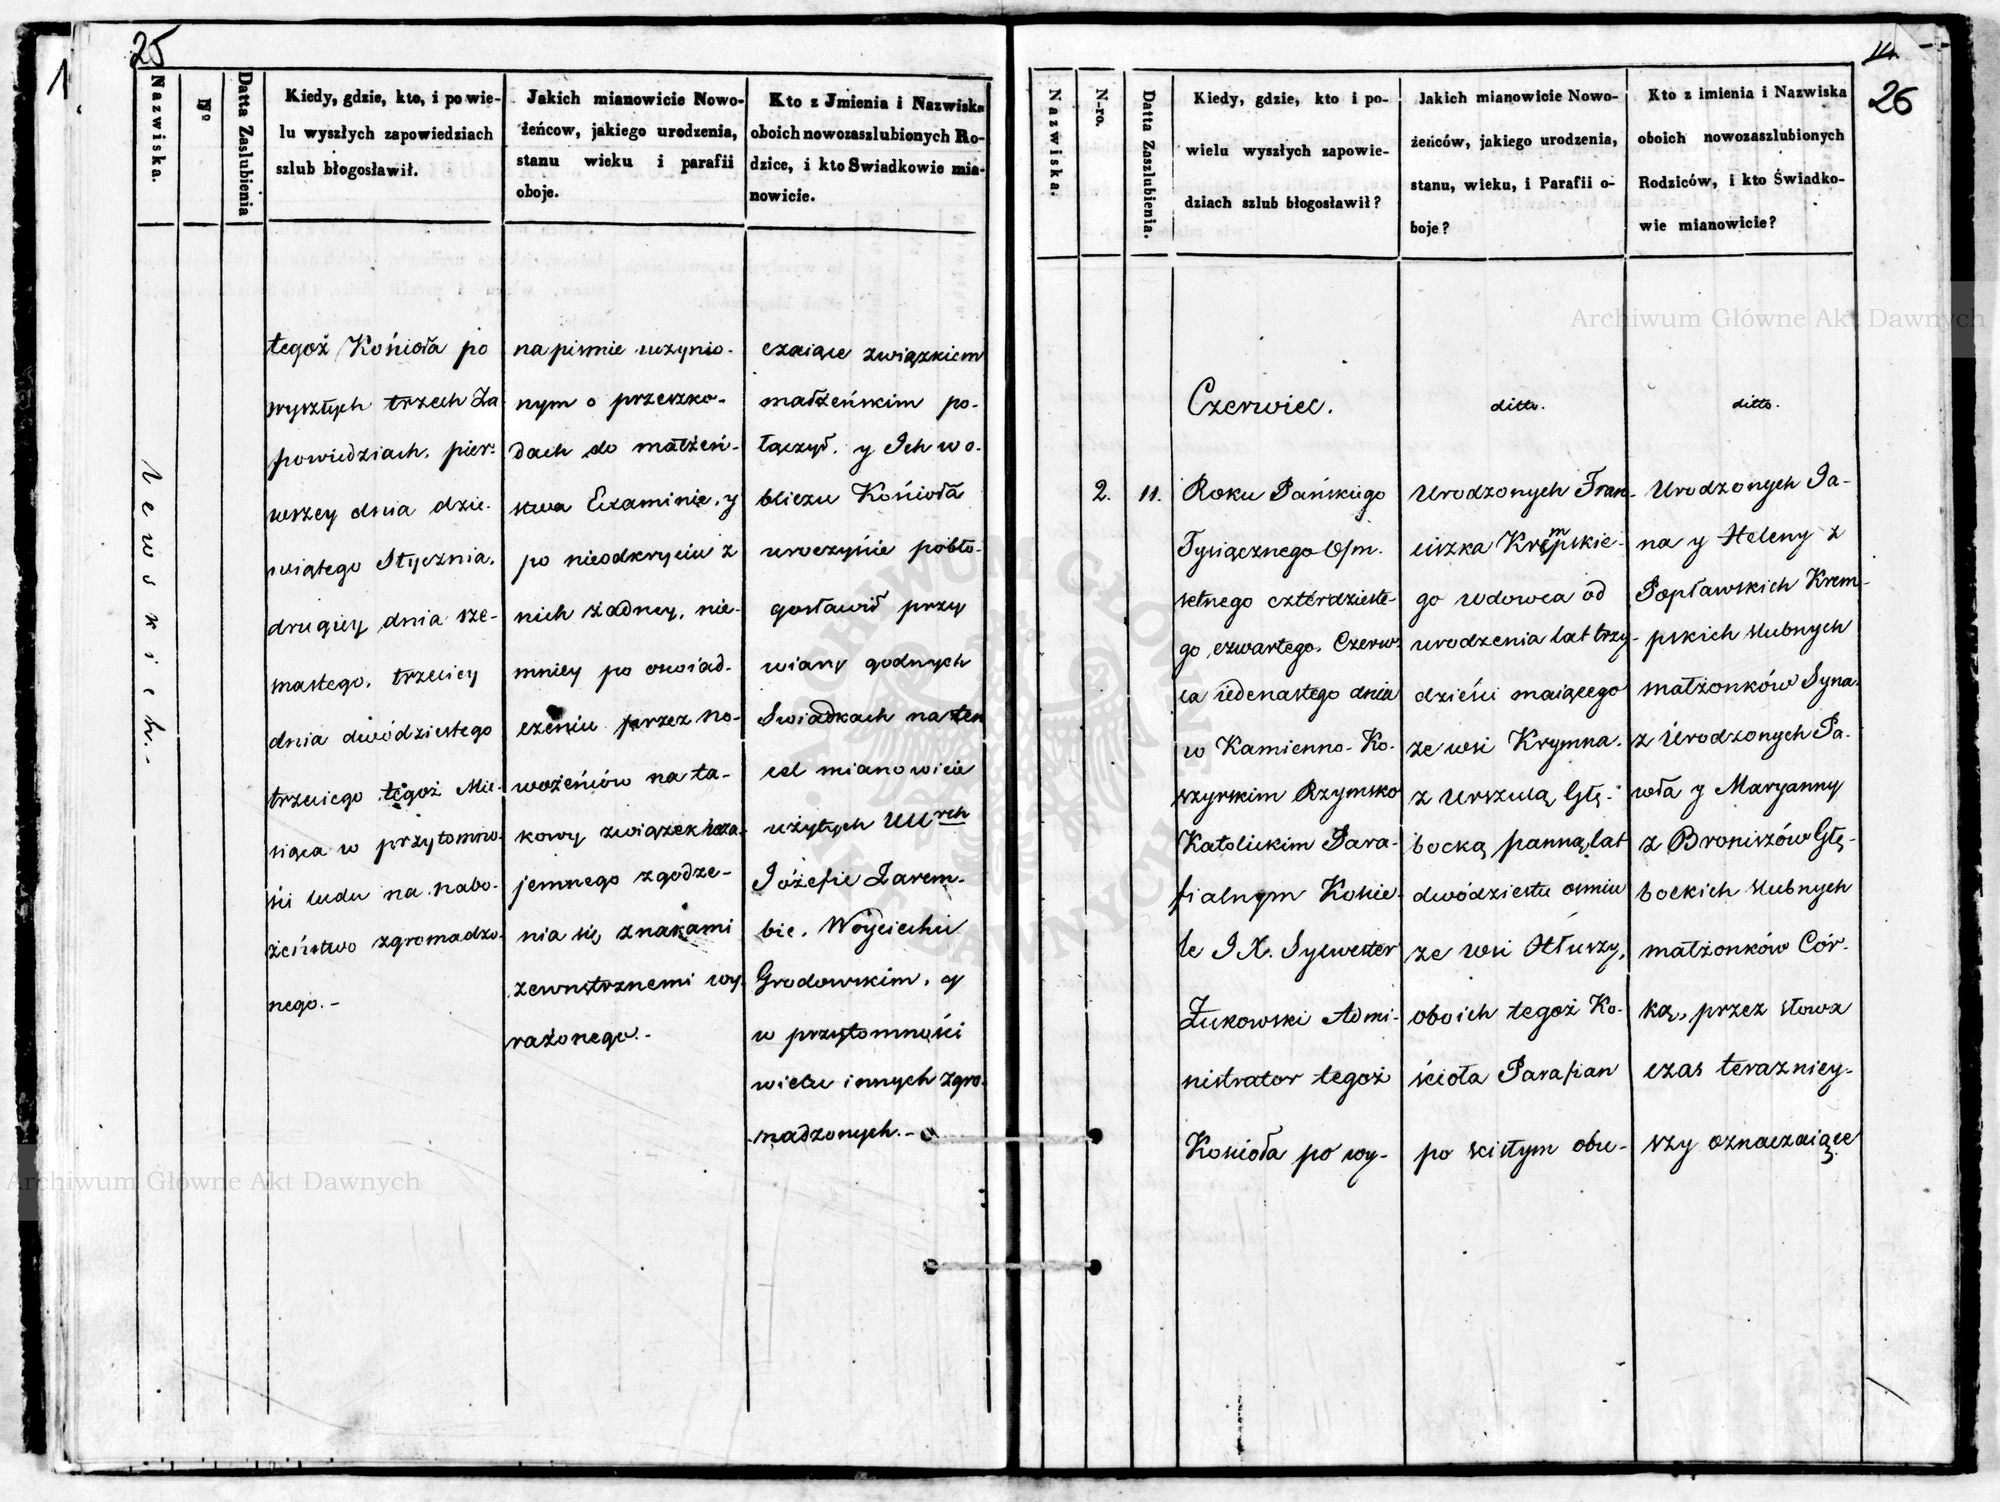 25
1.
Nazwiska.
No
Datta Zaslubienia
Kiedy, gdzie, kto, i po wie-
lu wyszłych zapowiedziach
szlub błogosławił.
Jakich mianowicie Nowo-
żeńcow, jakiego urodzenia,
stanu wieku i parafii
oboje.
Kto z Jmienia i Nazwiska
oboich nowozaszlubionych Ro-
dzice, i kto Swiadkowie mia-
nowicie.
lewskich.-
tegoż Kościoła po
wyszłych trzech Za
powiedziach. pier-
wszey dnia dzie-
wiątego Stycznia.
drugiey dnia sze-
snastego. trzeciey
dnia dwódziestego
trzeciego tegoż Mie-
siąca w przytomno-
ści ludu na nabo-
żeństwo zgromadzo-
nego.-
na piśmie uczynio-
nym o przeszko-
dach do małżeń-
stwa Examinie, y
po nieodkryciu z
nich żadney, nie-
mniey po oswiad-
czeniu przez no-
wożeńców na ta-
kowy związek wza-
jemnego zgodze-
nia się znakami
zewnętrznemi wy-
rażonego.-
czaiące związkiem
małżeńskim po-
łączył, y Ich w o-
bliczu Kościoła
uroczyście pobło-
gosławił przy
wiary godnych
Swiadkach na ten
cel mianowicie
użytych UUrch
Józefie Zarem-
bie, Woyciechu
Grodowskim, y
w przytomności
wielu innych zgro-
madzonych.-
14.
26
Nazwiska.
N-ro.
Datta Zaszlubienia.
Kiedy, gdzie, kto i po-
wielu wyszłych zapowie-
dziach szlub błogosławił?
Jakich mianowicie Nowo-
żeńców, jakiego urodzenia,
stanu, wieku, i Parafii o-
boje?
Kto z imienia i Nazwiska
oboich nowozaszlubionych
Rodziców, i kto Świadko-
wie mianowicie?
Czerwiec.
ditto.
ditto.
2.
11.
Roku Pańskiego
Tysiącznego Ośm-
setnego czterdzieste-
go czwartego, Czerw-
ca iedenastego dnia
w Kamienno-Ko-
szyrskim Rzymsko
Katolickim Para-
fialnym Koście-
le J.X. Sylwester
Żukowski Admi-
nistrator tegoż
Kościoła po wy-
Urodzonych Fran-
ciszka Krempskie-
go wdowca od
urodzenia lat trzy-
dzieści maiącego
ze wsi Krymna.
z Urszulą Głę-
bocką panną, lat
dwódziestu ośmiu
ze wsi Ołuszy,
oboich tegoż Ko-
ścioła Parafian
po ścisłym obu-
Urodzonych Ja-
na y Heleny z
Popławskich Krem-
pskich slubnych
małżonków Syna.
z Urodzonych Pa-
wła y Maryanny
z Broniszów Głę-
bockich slubnych
małżonków Cór-
ką, przez słowa
czas teraźniey-
szy oznaczaiące
Archiwum Główne Akt Dawnych
Archiwum Główne Akt Dawnych
ARCHIWUM GŁÓWNE AKT DAWNYCH